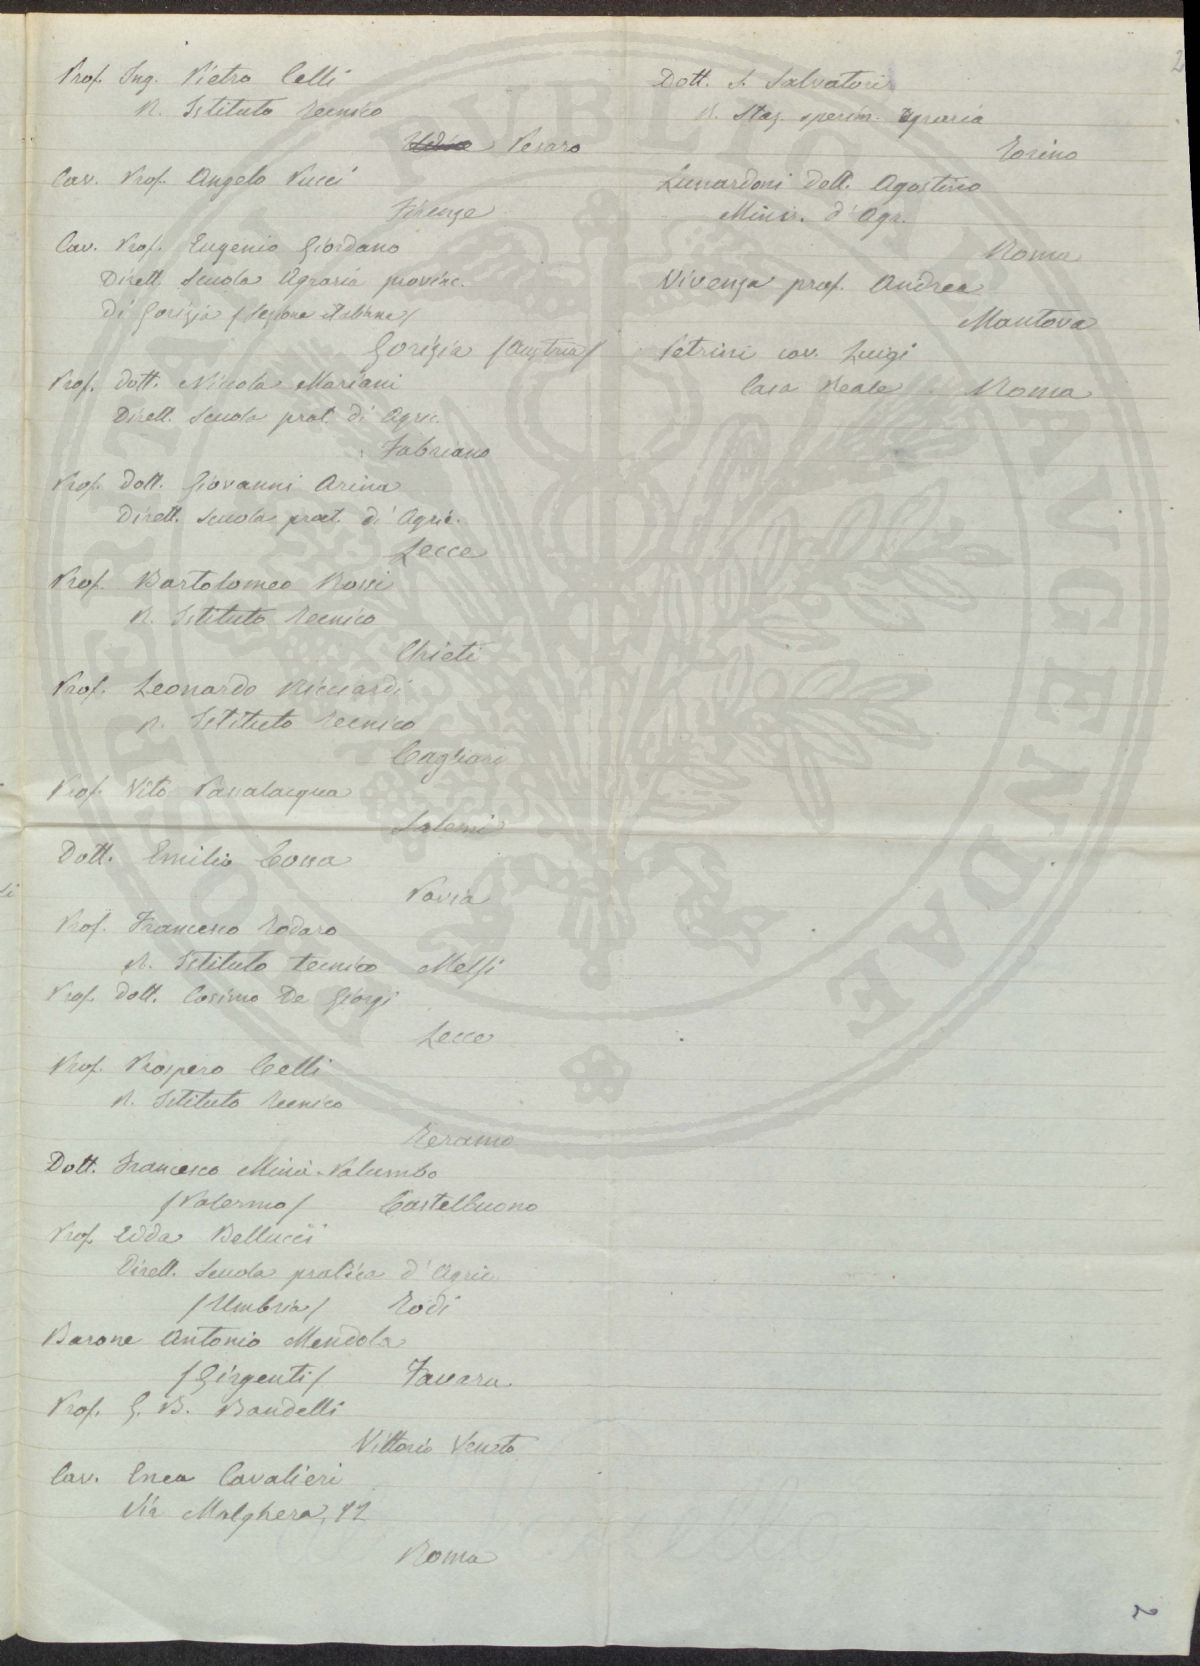 Prof. Ing. Pietro Celli
R. Istituto Tecnico
Udine Pesaro
Cav. Prof. Angelo Pucci
Firenze
Cav. Prof. Eugenio Giordano
Dirett. Scuola Agraria provinc.
di Gorizia /Sezione Italiana/
Gorizia /Austria/
Prof. Dott. Nicola Mariani
Dirett. Scuola prat. di Agric.
Fabriano
Prof. Dott. Giovanni Arina
Dirett. Scuola prat. di Agric.
Lecce
Prof. Bartolomeo Rossi
R. Istituto Tecnico
Chieti
Prof. Leonardo Ricciardi
R. Istituto Tecnico
Cagliari
Prof. Vito Passalacqua
Salemi
Dott. Emilio Cossa
Pavia
Prof. Francesco Todaro
R. Istituto tecnico Melfi
Prof. Dott. Cosimo De Giorgi
Lecce
Prof. Prospero Celli
R. Istituto Tecnico
Teramo
Dott. Francesco Minà-Palumbo
/Palermo/ Castelbuono
Prof. Edda Bellucci
Dirett. Scuola pratica d'Agric.
/Umbria/ Todi
Barone Antonio Mendola
/Girgenti/ Favara
Prof. G. B. Bandelli
Vittorio Veneto
Cav. Enea Cavalieri
Via Malghera, 12
Roma
Dott. S. Salvatori
R. Staz. sperim. Agraria
Torino
Lunardoni dott. Agostino
Minis. d'Agr.
Roma
Vivenza prof. Andrea
Mantova
Petrini cav. Luigi
Casa Reale Roma
2
PUBLICAE UTILITATI AUGENDAE